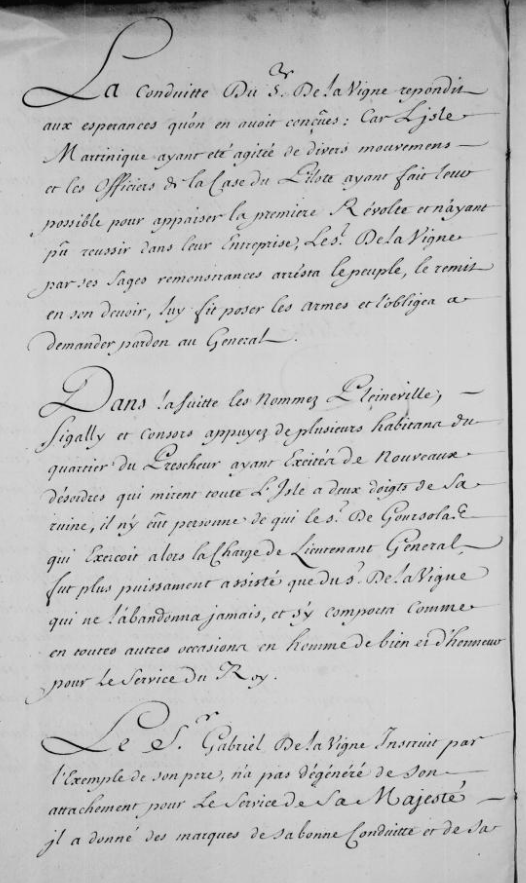 La Conduitte Du Sr. De la Vigne repondit
aux esperances qu'on en avoit conçües: Car L'jsle
Martinique ayant eté agitée de divers mouvemens
et les Officiers de la Case du Pilote ayant fait leur
possible pour appaiser la premiere Révolte et n'ayant
pû reussir dans leur Entreprise, Le Sr. De la Vigne
par ses sages remonstrances arrésta le peuple, le remit
en son devoir, luy fit poser les armes et l'obligea a
demander pardon au General.
Dans la suitte les Nommez Pleineville,
Sigally et Consors appuyez de plusieurs habitans du
quartier du Prescheur ayant Excités de Nouveaux
désordres qui mirent toute L'Isle a deux doigts de sa
ruine, il n'y eût personne de qui le Sr. De Goursolas
qui Exercoit alors la Charge de Lieutenant General
fut plus puissament assisté que du Sr. De la Vigne
qui ne l'abandonna jamais, et s'y comporta Comme
en toutes autres occasions en homme de bien et d'honneur
pour le Service du Roy.
Le Sr. Gabriel De la Vigne Instruit par
l'Exemple de son pere, n'a pas dégénéré de son
attachement pour Le Service de Sa Majesté
jl a donné des marques de sa bonne Conduitte et de sa